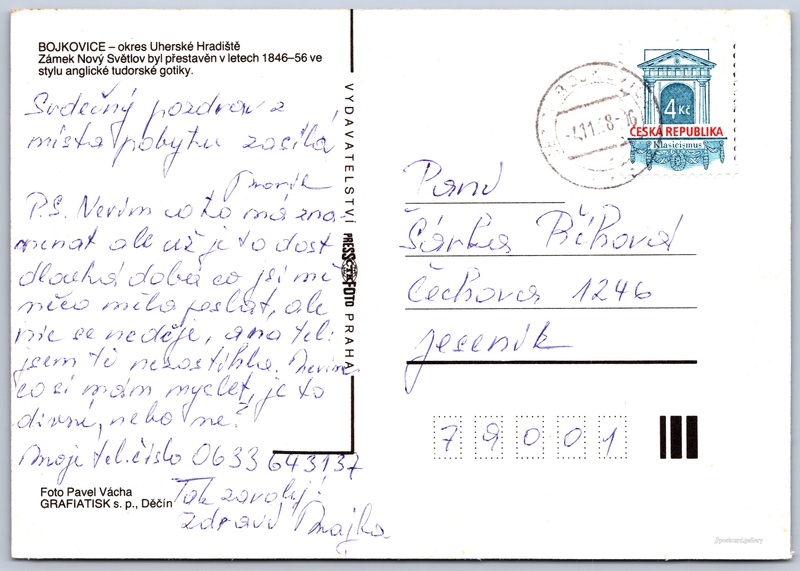 BOJKOVICE – okres Uherské Hradiště
Zámek Nový Světlov byl přestavěn v letech 1846–56 ve
stylu anglické tudorské gotiky.
Srdečný pozdrav z
místa pobytu zasílá
P.S. Nevím co to má zna-
menat ale už je to dost
dlouhá doba co jsi mi
něco měla poslat, ale
nic se neděje, a na tel.
jsem tě nezastihla. Nevím
co si mám myslet, je to
divné, nebo ne?
Moje tel. číslo 0633 643137
Tak zavolej!
zdraví Majka
Foto Pavel Vácha
GRAFIATISK s. p., Děčín
VYDAVATELSTVÍ PRESSFOTO PRAHA
4 Kč
ČESKÁ REPUBLIKA
Klasicismus
Paní
Šárka Říhová
Čechova 1246
Jeseník
79001
postcard.gallery